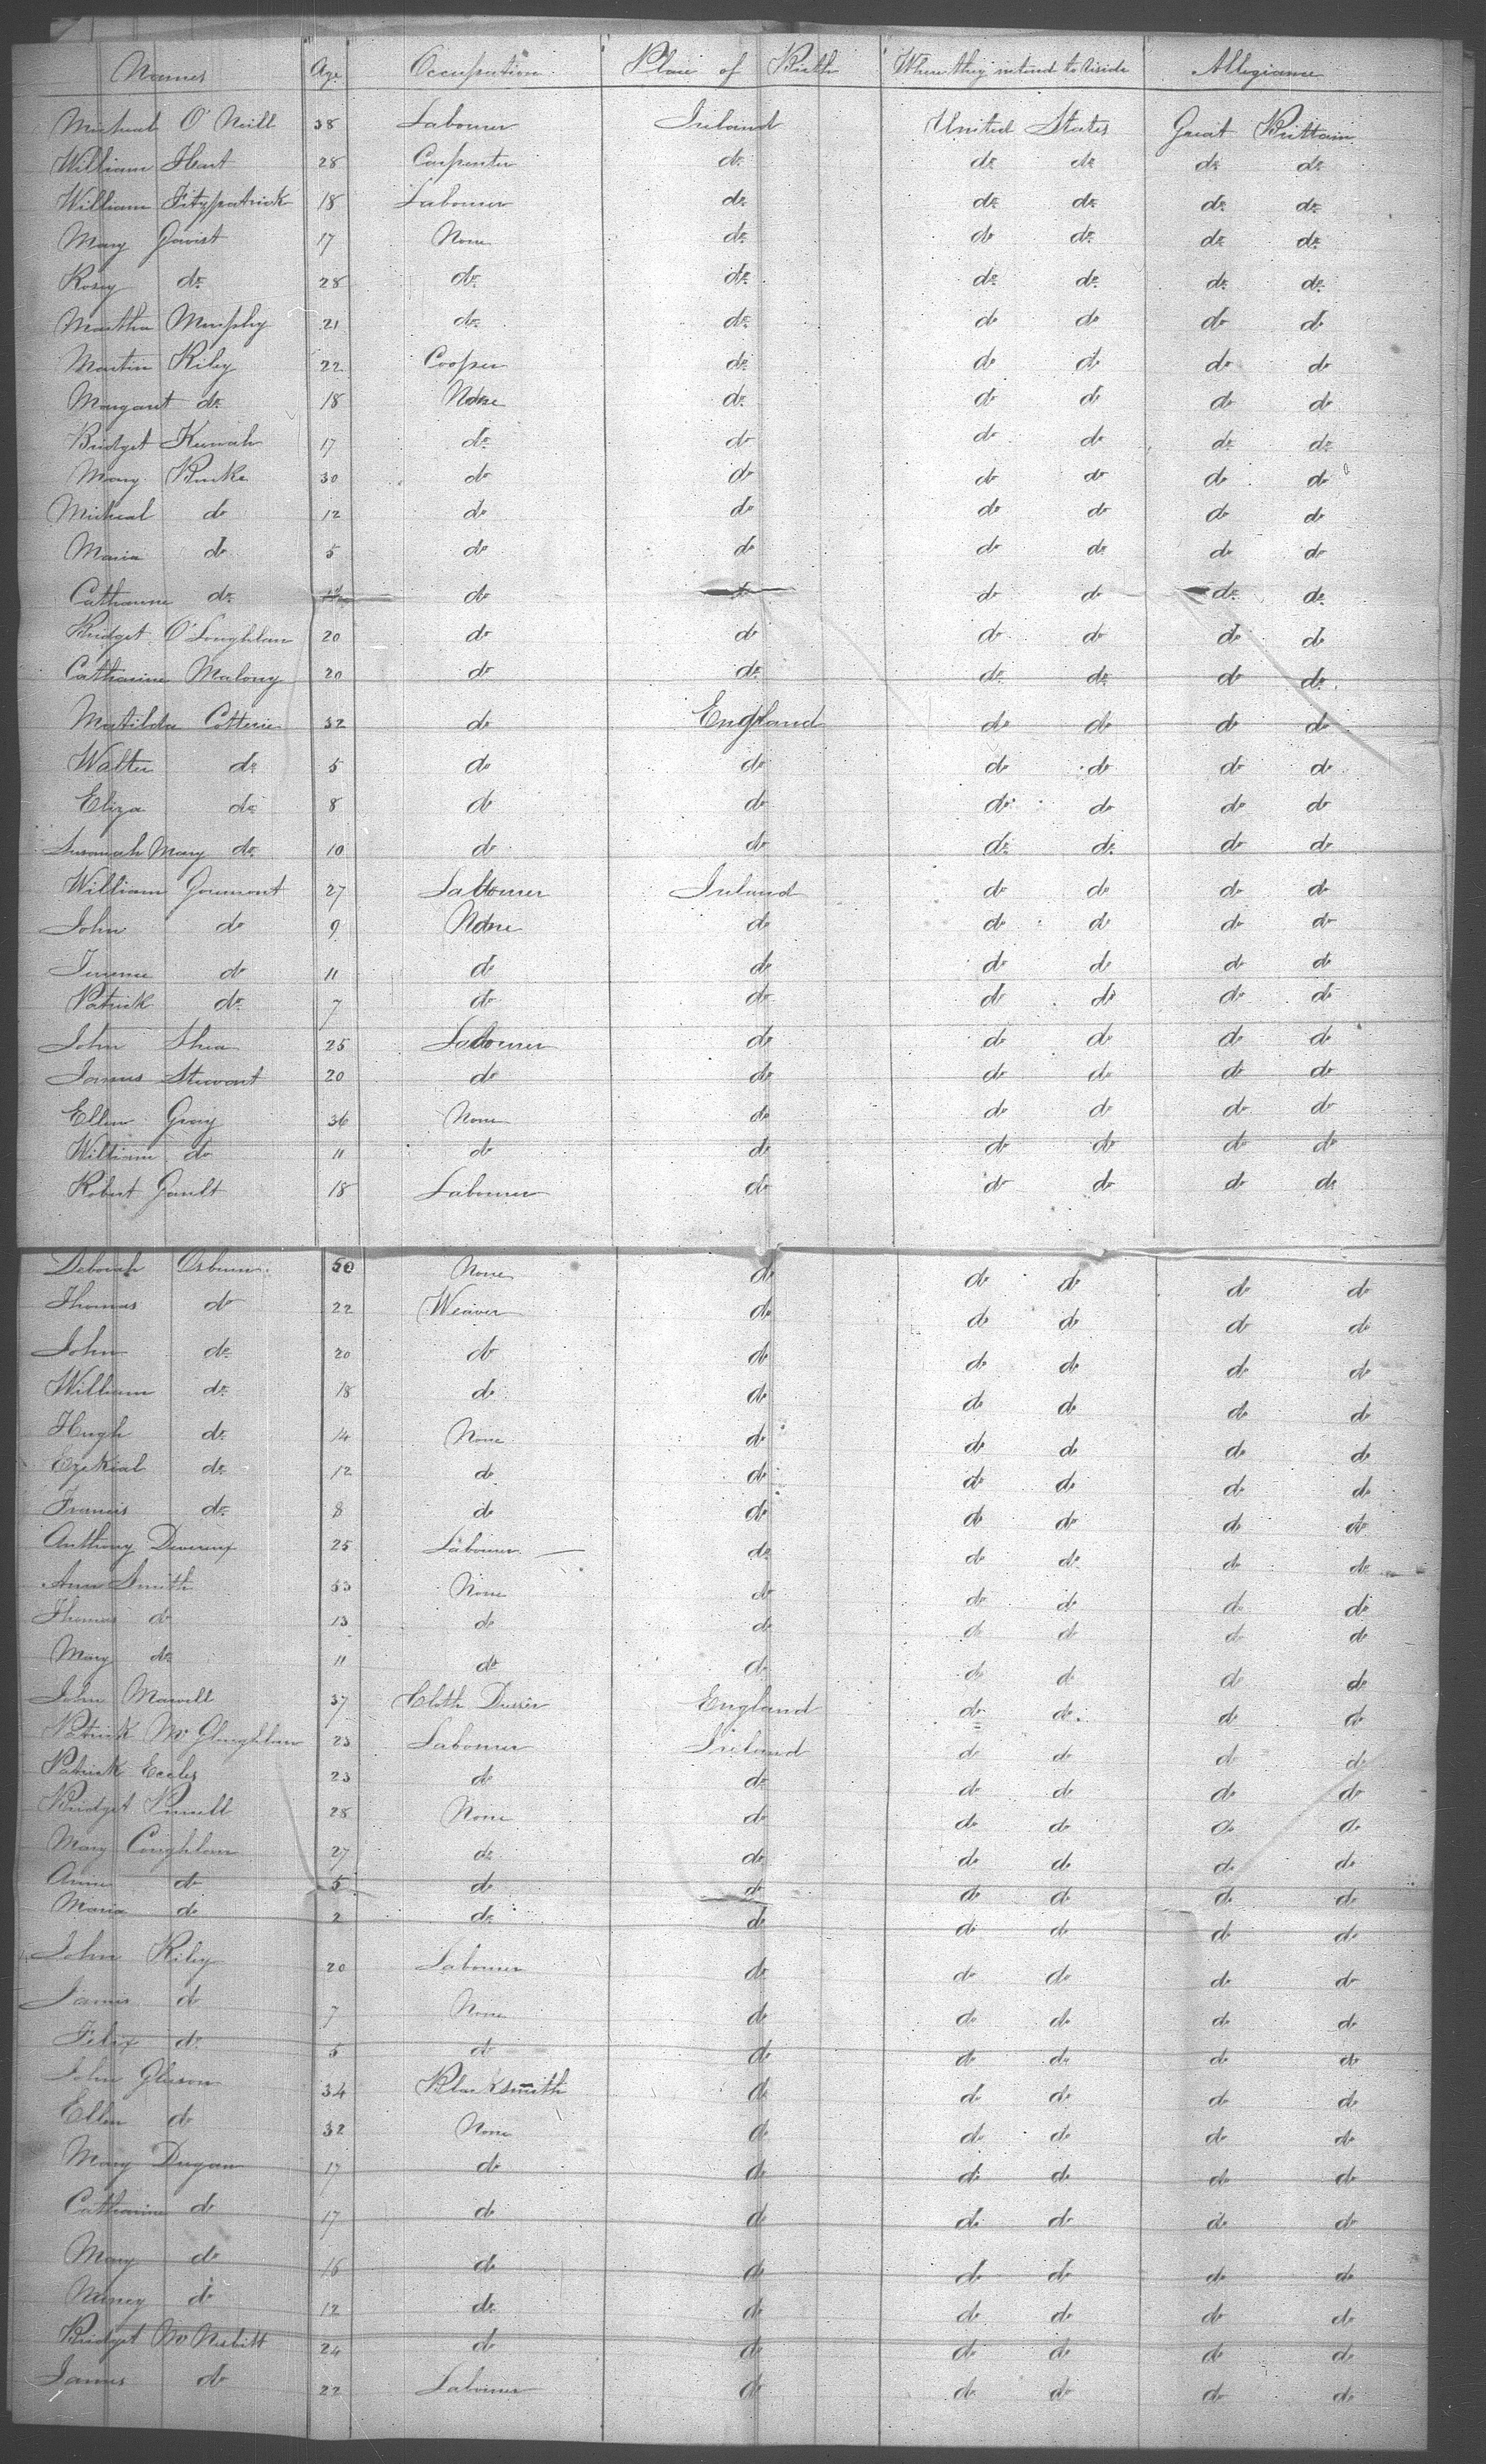 Names Age Occupation Place of Birth Where they intend to Reside Allegiance
Micheal O'Neill 38 Labourer Ireland United States Great Brittain
William Hart 28 Carpenter do do do do do
William Fitzpatrick 18 Labourer do do do do do
Mary 17 None do do do do do
Rosey do 28 do do do do do do
Martha Murphy 21 do do do do do do
Martin Riley 22 Cooper do do do do do
Margaret do 18 None do do do do do
Bridget 17 do do do do do do
Mary Burke 30 do do do do do do
Micheal do 12 do do do do do do
Maria do 5 do do do do do do
Catharine do do do do do do do
Bridget O'Loughlan 20 do do do do do do
Catharine Malony 20 do do do do do do
Matilda Cotterie 32 do England do do do do
Walter do 5 do do do do do do
Eliza do 8 do do do do do do
Susannah Mary do 10 do do do do do do
William Gormont 27 Labourer Ireland do do do do
John do 9 None do do do do do
Terence do 11 do do do do do do
Patrick do 7 do do do do do do
John Shea 25 Labourer do do do do do
James Stewart 20 do do do do do do
Ellen Gray 36 None do do do do do
William do 11 do do do do do do
Robert Gault 18 Labourer do do do do do
Deborah Osburn 50 None do do do do do
Thomas do 22 Weaver do do do do do
John do 20 do do do do do do
William do 18 do do do do do do
Hugh do 14 None do do do do do
Ezekial do 12 do do do do do do
Francis do 8 do do do do do do
Anthony Devereux 25 Labourer do do do do do
Ann Smith 33 None do do do do do
Thomas do 13 do do do do do do
Mary do 11 do do do do do do
John 37 Cloth Dresser England do do do do
Patrick McGloughlan 23 Labourer Ireland do do do do
Patrick Eccles 23 do do do do do do
Bridget 28 None do do do do do
Mary Coughlan 27 do do do do do do
Anne do 5 do do do do do do
Maria do 2 do do do do do do
John Riley 20 Labourer do do do do do
James do 7 None do do do do do
Felix do 5 do do do do do do
John Gleeson 34 Blacksmith do do do do do
Ellen do 32 None do do do do do
Mary Dugan 17 do do do do do do
Catharine do 17 do do do do do do
Mary do 16 do do do do do do
Nancy do 12 do do do do do do
Bridget McNesbitt 24 do do do do do do
James do 22 Labourer do do do do do